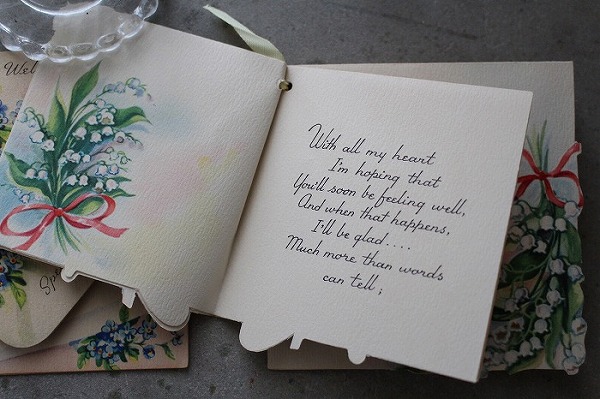 Wel
With all my heart
I'm hoping that
You'll soon be feeling well,
And when that happens,
I'll be glad....
Much more than words
can tell;
Sp